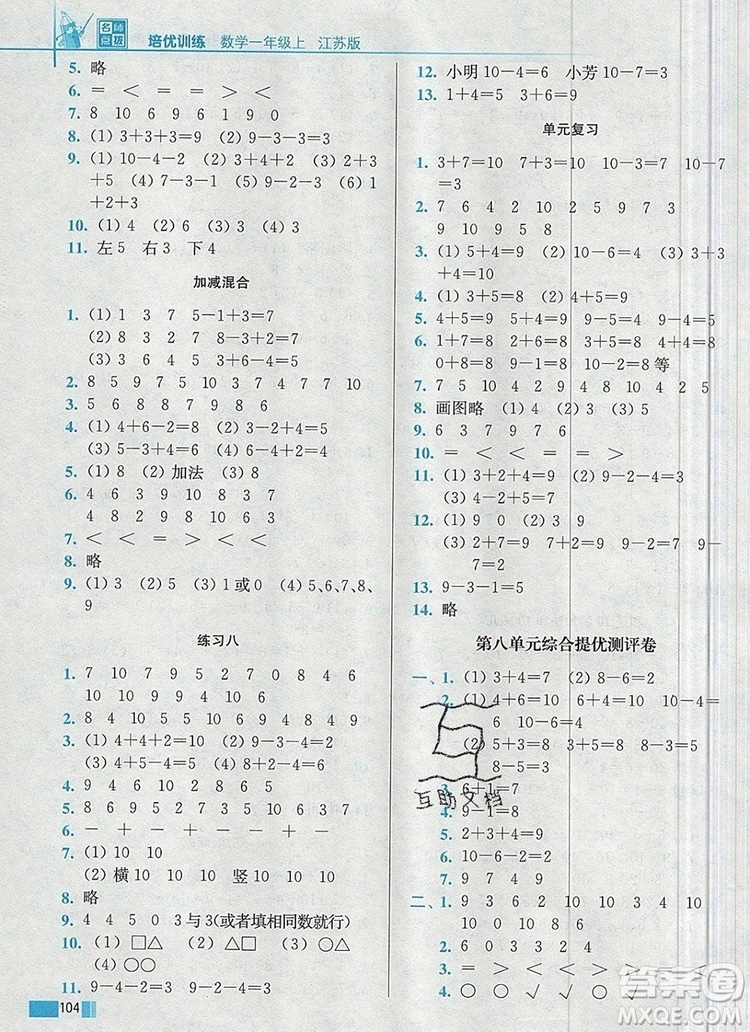 名师点拨 培优训练 数学一年级上 江苏版
5. 略
6. = < = = > <
7. 8 10 6 9 6 1 9 0
8. (1) 3+3+3 (2) 9-3-3=3
9. (1) 10-4-2 (2) 3+4+2 (3) 2+3
+5 (4) 7-5-2 (5) 9-2-3 (6) 1+
2+3
10. (1) 4 (2) 6 (3) 3 (4) 3
11. 左5 右3 下4
加减混合
1. (1) 1 3 7 5-1+3=7
(2) 8 3 2 7 8-3+2=7
(3) 3 6 4 5 3+6-4=5
2. 8 5 9 7 5 10 3 7 4 7 7 10
3. 5 6 8 8 7 9 8 6
4. (1) 4+6-2=8 (2) 3+4-2=5
(3) 5-3+4=6 (4) 9-6+1=4
5. (1) 8 (2) 加法 (3) 8
6. 4 6 3 9 10 8 3 7
4 8 2 9 8 9 8 3
7. < < = > < =
8. 略
9. (1) 3 (2) 5 (3) 1或0 (4) 5、6、7、8、
9
练习八
1. 7 10 7 9 5 2 7 0 8 4 6
10 10 9 8
2. 8 8 4 3 4 9 10 6 8 4 9
3. (1) 4+4+2=10 (2) 4-2+3=5
(3) 4+5-4=5 (4) 9-3-2=4
4. 9 4 6 10 2 8 6 5
5. 8 6 9 5 2 7 5 3 8 10 5
6. － ＋ － ＋ － ＋
7. (1) 10 10
(2) 横10 10 10 竖10 10 10
8. 略
9. 4 4 5 0 3与3(或者填相同数就行)
10. (1) □△ (2) △□ (3) ○△
(4) ○○
11. 9-4-2=3 9-2-4=3
104
12. 小明10-4=6 小芳10-3=7
13. 1+4=5 3+6=9
单元复习
1. 3+7=10 7+3=10 10-3=7 10-7
=3
2. 7 6 4 2 10 2 5 9 7 3
9 10 9 5 8
3. (1) 5+4=9 (2) 10-6=4 (3) 6
+4=10
4. 略
5. 4+5=9 5+4=9 9-5=4 9-4=5
6. 1+7=8 6+2=8 3+5=8 4+4=8
0+8=8 9-1=8 10-2=8等
7. 7 5 10 4 2 9 4 8 10 4 10
8. 画图略 (1) 5 (2) 5 (3) 5
9. 6 3 7 9 7 6
10. = < = < > >
11. (1) 3+2+4=9 (2) 9-4-2=3
(3) 4-2+5=7
12. (1) 9 0 (2) 3 9
(3) 2+7=9 7+2=9 9-2=7 9-7
=2
13. 9-3-1=5
14. 略
第八单元综合提优测评卷
一、1. (1) 3+4=7 (2) 8-6=2
2. (1) 4+6=10 6+4=10 10-4=
6 10-6=4
(2) 5+3=8 3+5=8 8-3=5
8-5=3
3. 6+1=7
4. 9-1=8
5. 2+3+4=9
6. 10-6-2=2
7. 9 7 4 9
二、1. 9 3 6 2 10 10 8 9
2. 6 0 3 3 2 4
3. = > < > < >
4. ○ ○ √ √ √ ○
互助文档
答案圈
MXQE.COM